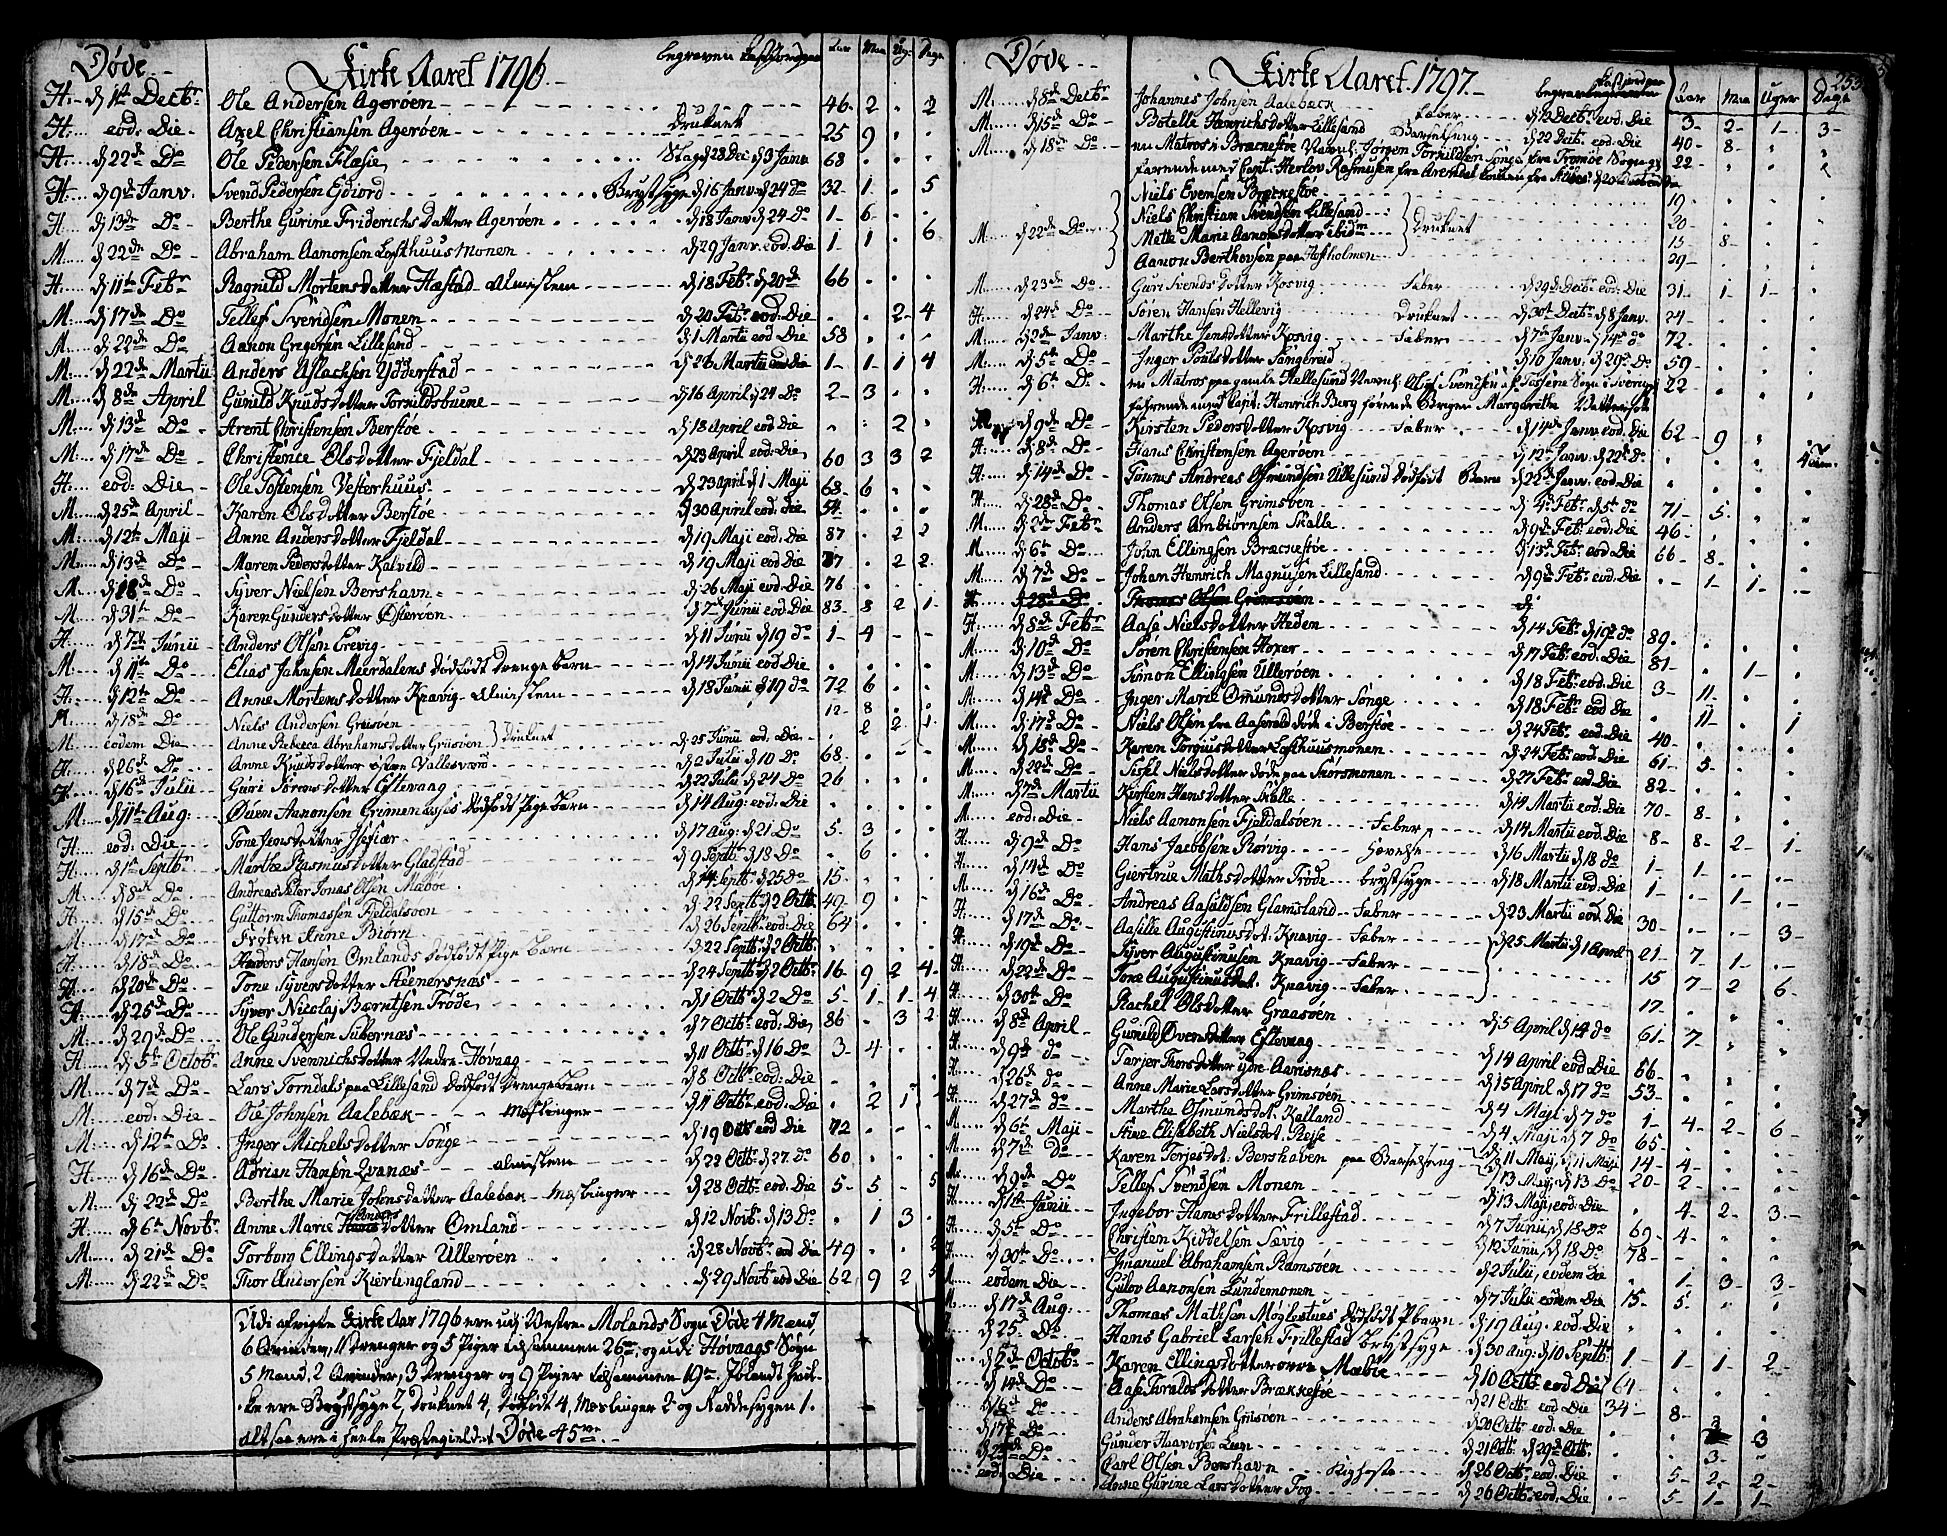 Døde Kirke Aaret 1796 begraven Aar Maa Ug. Dage
H. d 1te Decbr Ole Andersen Agerøen 46 2 . 2
H. eod: Die Axel Christiansen Agerøen Druknet 25 9 . .
H. d 22de Do Ole Pedersen Flasie d 28 Dec d 3 Janv 68 . . .
H. d 9de Janv. Svend Pedersen Brystsyge d 16 Janv. d 24 do 32 1 . 5
H. d 13de Do Berthe Gurine Friderichsdatter Agerøen d 18 Janv d 24 Do 1 6 .
M. d 22de Do Abraham Aanonsen Lofthuusmonen d 29 Janv. eod. Die 1 1 . 6
H. d 11te Febr Ragnild Mortensdatter Hæstad Almislem d 18 Febr d 20de 66 . . .
M. d 17de Do Tellef Svendsen Monen d 20 Febr. eod: Die . . 2 4
M. d 22de Do Aanon Gregersen Lillesand d 1 Martii eod Die 58 . . .
M. d 22de Martii Anders Aslachsen Ydderstad d 26 Martii eod Die 1 1 1 4
M. d 8de April Gunild Knudsdatter Torkildsbuene d 16 April d 24 Do 2 3 . .
M. d 13de Do Arent Christensen Berstøe d 18 April eod Die . . 2 .
M. d 17de Do Christence Olsdatter Fjeldal d 23 April eod: Die 60 3 3 2
H. eod: Die Ole Tostensen Vesterhuus d 23 April d 1 Maji 68 6 . .
M. d 25de April Karen Olsdatter Berstøe d 30 April eod: die 54 . . .
M. d 12te Maji Anne Andersdatter Fjeldal d 19 Maji eod: Die 87 . 2 2
M. d 13de Do Maren Pedersdatter Kalvild d 19 Maji eod Die . 2 2
M. d 18de Do Syver Nielsen Bershavn d 26 Maji eod Die 76 . . .
M. d 31te Do Karen Gundersdatter Østerøen d 7de Junii eod: Die 83 8 2 1
H. d 7de Junii Anders Olsen d 11 Junii d 19 do 1 4 . .
M. d 11te Do Elias Jahnsen Meerdalens dødfødt drengebarn d 14 Junii eod: Die
H. d 12te Do Anne Mortensdatter Knavig Almislem d 18 Junii d 19 do 72 6 . .
M. d 18de Do Niels Andersen Grusøen 12 8 . .
M. eodem Die Anne Rebecca Abrahamsdatter Grusøen } Druknet d 25 Junii eod. Die . 2 2 1
H. d 26de Do Anne Knudsdatter Vallesværd d 2 Julii d 10 Do 68 . . .
H. d 16de Julii Guri Sørensdatter Eftevaag d 22 Julii d 24 Do 26 . . .
M. d 11te Aug: Øuen Aanonsen Grimenæsses Dødfødt Pige Barn d 14 Aug: eod: Die
H. eod: Die Tone Jensdatter d 17 Aug: d 21 Do 5 3 . .
H. d 1te Septbr Marthe Rasmusdatter Gladstad d 9 Septb d 18 Do . 6 . .
M. d 8de Do Andreas Peter Jonas Olsen Mæbøe d 14 Septb: d 25 Do 15 . . .
H. d 15de Do Guttorm Thomassen Fjeldalsøen d 22 Septb d 2 Octb 49 9 . .
M. d 17de Do Frøken Anne Biørn d 26 Septb eod: Die 64 . . .
H. d 18de Do Anders Hansen Omlands dødfødt Pige Barn d 22 Septb d 2 Octb.
H. d 20de Do Tone Syversdatter Steenersnæs d 24 Septb d 2 Octb: 16 9 2 4
H. d 25de Do Syver Nicolaj Bærntsen Trøde d 1 Octb d 2 Do 5 1 1 4
M. d 29de Do Ole Gundersen d 7 Octb: eod: Die 86 . 3 2
H. d 5te Octobr Anne Svennichsdatter Nedre Høvaag d 11 Octb d 16 Do 3 4 . .
M. d 7de Do Lars Torndals paa Lillesand dødfødt Drenge Barn d 8 Octb: eod: Die
M. eod: Die Ole Johnsen Aalebæk Meslinger d 11 Octb: eod Die . 2 1 .
M. d 12te Do Inger Michelsdatter Songe d 19 Octb eod Die 72 . . .
H. d 16de Do Adrian Hansen Qvanæs Almislem d 22 Octb: d 27 do 60 . . .
M. d 22de Do Berthe Marie Johnsdatter Aalebæk Meslinger d 28 Octb: eod Die 5 5 . 5
H. d 6te Novbr Anne Marie Andersdatter Omland d 12 Novb: d 13 Do . 1 3 .
M. d 21de Do Torborg Ellingsdatter Ullerøen d 28 Novb: eod Die 49 . . 2
M. d 22de Do Thor Andersen Kierlingland d 29 Novb eod Die 62 9 2 5
Udi afvigte Kirke Aar 1796 ere udj Vestre Molands Sogn Døde 4 Mænd,
6 Qvinder, 11 Drenger og 5 Piger tilsammen 26de, og udi Høvaags Sogn
5 Mænd, 2 Qvinder, 3 Drenger og 9 Piger tilsammen 19de. Iblandt hvil-
ke ere Brystsyge 2, Druknet 4, dødfødt 4, Meslinger 2 og Raddesygen 1.
altsaa ere i heele Præstegieldet Døde 45ve.
Døde Kirke Aaret 1797 begraven Aar Maa Uger Dage 253
M. d 8de Decbr Johannes Johnsen Aalebæck Feber d 12 Decb: eod: Die 3 2 1 3
M. d 15de Do Botelle Henrichsdatter Lillesand Barselseng d 22 Decb. eod: Die 40 8
M. d 18de Do en Matros i Brækestøe Navnl: Jørgen Torkildsen Songe fra Tromøe Sogn 22
farende med Capt: Herlov Rasmusen fra Arendal
Niels Evensen Brækkestøe 19
Niels Christian Svendsen Lillesand 20
M. d 22de Do Mette Marie Aanonsdatter ibidm } Druknet 15 8
Aanon Berthovsen paa Hofholmen 29
M. d 23de Do Guri Svendsdatter Kosvig Feber d 29de Decb: eod: Die 31 1 1
H. d 24de Do Søren Hansen Hellevig Druknet d 30te Decb: d 8 Janv. 24
M. d 2de Janv: Marthe Jensdatter Kosvig Feber d 7de Janv. d 14de do 72
M. d 5te Do Inger Poulsdatter Sangereid d 16 Janv. d 29de Do 59
H. d 6te Do en Matros paa gamle Hellesund Navnl: Oluf Svendsen af Tossene Sogn i Sverrig 22
farende med Capt: Henrich Berg førende Brigen Margaretha
M. d 9de Do Kirsten Pedersdatter Kosvig Feber d 14de Janv. eod: Die 62 9
H. d 8de Do Hans Christensen Agerøen d 12te Janv. d 22de do
H. d 14de Do Tønnes Andreas Osmundsen Ullesund dødfødt Barn d 22de Janv. eod Die
H. d 28de Do Thomas Olsen Grimsøen d 4de Febr d 5te do 71 5
M. d 2de Febr Anders Arnbiørnsen Skalle d 9de Feb: eod: Die 46
M. d 6te Do John Ellingsen Brækestøe d 13de Feb: eod Die 66 8
M. d 7de Do Johan Henrich Magnusen Lillesand d 9de Feb: eod: Die . 1 1
H. d 28de Do Thomas Olsen Grimsøen
H. d 8de Febr Aase Nielsdatter Heden d 14 Feb: d 19de do 89
M. d 10de Do Søren Christensen Hoxer d 17 Feb: eod: Die 81
M. d 13de Do Simon Ellingsen Ullerøen d 18 Feb: eod: Die 3 . 1
M. d 14de Do Inger Marie Omundsdatter Songe d 18 Feb: eod Die . 11
M. d 17de Do Niels Olsen fra Aasereid døde i Berstøe d 24 Feb: eod: Die 40 11 . 1
M. d 18de Do Karen Torjusdatter Lofthuusmonen d 24 Feb: eod: Die 61 5
M. d 22de Do Sissel Nielsdatter døde paa Skorsmonen d 27 Feb: eod: Die 82
M. d 7de Martii Kirsten Hansdatter Skalle d 14 Martii eod: Die 70 8
eod: Die Niels Aanonsen Fjeldalsøen Feber d 14 Martii eod: Die 8 8 2 1
H. d 9de Do Hans Jacobsen Rørvig Hovelse d 16 Martii d 18 do 1 1
H. d 14de Do Giertrue Mathsdatter Trøde brystsyge d 18 Martii eod: Die 1 . 1
M. d 16de Do Andreas Aasuldsen Glamsland Feber d 23 Martii eod: Die 30 . . 3
H. d 17de Do Aasille Augustinusdot. Knavig Feber } d 25 Martii d 1 April 21 7 1
H. d 19de Do Syver Augustinusen Knavig Feber 15 7 2 6
H. d 22de Do Tone Augustinusdat. Knavig Feber 17
H. d 30te Do Rachel Olsdatter Graasøen d 5 April d 14 do 61 7
H. d 8de April Gunild Øvensdatter Eftevaag d 14 April eod: Die 66
H. d 9de do Tarjer Thorsdatter ydre Aarisnæs d 15 April d 17 do 53
H. d 26de do Anne Marie Larsdatter Grimsøen d 4 Maji d 7 do 1 4 2 6
H. d 27de do Marthe Osmundsdot. Kalland d 4 Maji d 7 do 65
M. d 6te Maji Stine Elisabeth Nielsdot. Reise d 11 Maij, d 11 Maji 14 4
M. d 7de Do Karen Torjesdot: Bershaven paa Barselseng d 13 Maij, d 13 Do 20 2
M. d 9de Do Tellef Svendsen Monen d 13 Maji, eod: Die . 4 2 3
H. d 1te Junii Ingebor Hansdatter Frillestad d 7 Junii, d 18 do 69 4
H. d 5te Do Christen Kiddelsen Sævig d 12 Junii, d 18 Do 78
H. d 30te Do Imanuel Abrahamsen Ramsøen d 2 Julii, eodem Die . 1 3 3
M. eodem Die Gulov Aanonsen Lundemonen d 7 Julii eodem Die 15 5
M. d 17de Aug: Thomas Mathisen Møglestues dødfødt P. barn d 19 Aug. eod: Die
d 25de Do Hans Gabriel Larsen Frillestad Brystsyge d 30 Aug: d 10 Septb: 1 1 1 2
d 2de Octobr Karen Ellingsdatter øvre Mæbøe d 10 Octb eod Die 64
d 14de Do Aase Toraldsdatter Brækkestøe d 21 Octb eod Die 34 8
d 16de Do Anders Abrahamsen Grusøen d 20 Octb. eod: Die . . 3
d 17de Do Gunder d 21 Octb: d 29de Octb. . 3
d 25de Do Carl Olsen Bershavn Kighoste d 26 Octb. eod: Die 5 2 2
eod: Die Anne Gurine Larsdatter Fog d 26 Octb. eod: Die 5 1 1